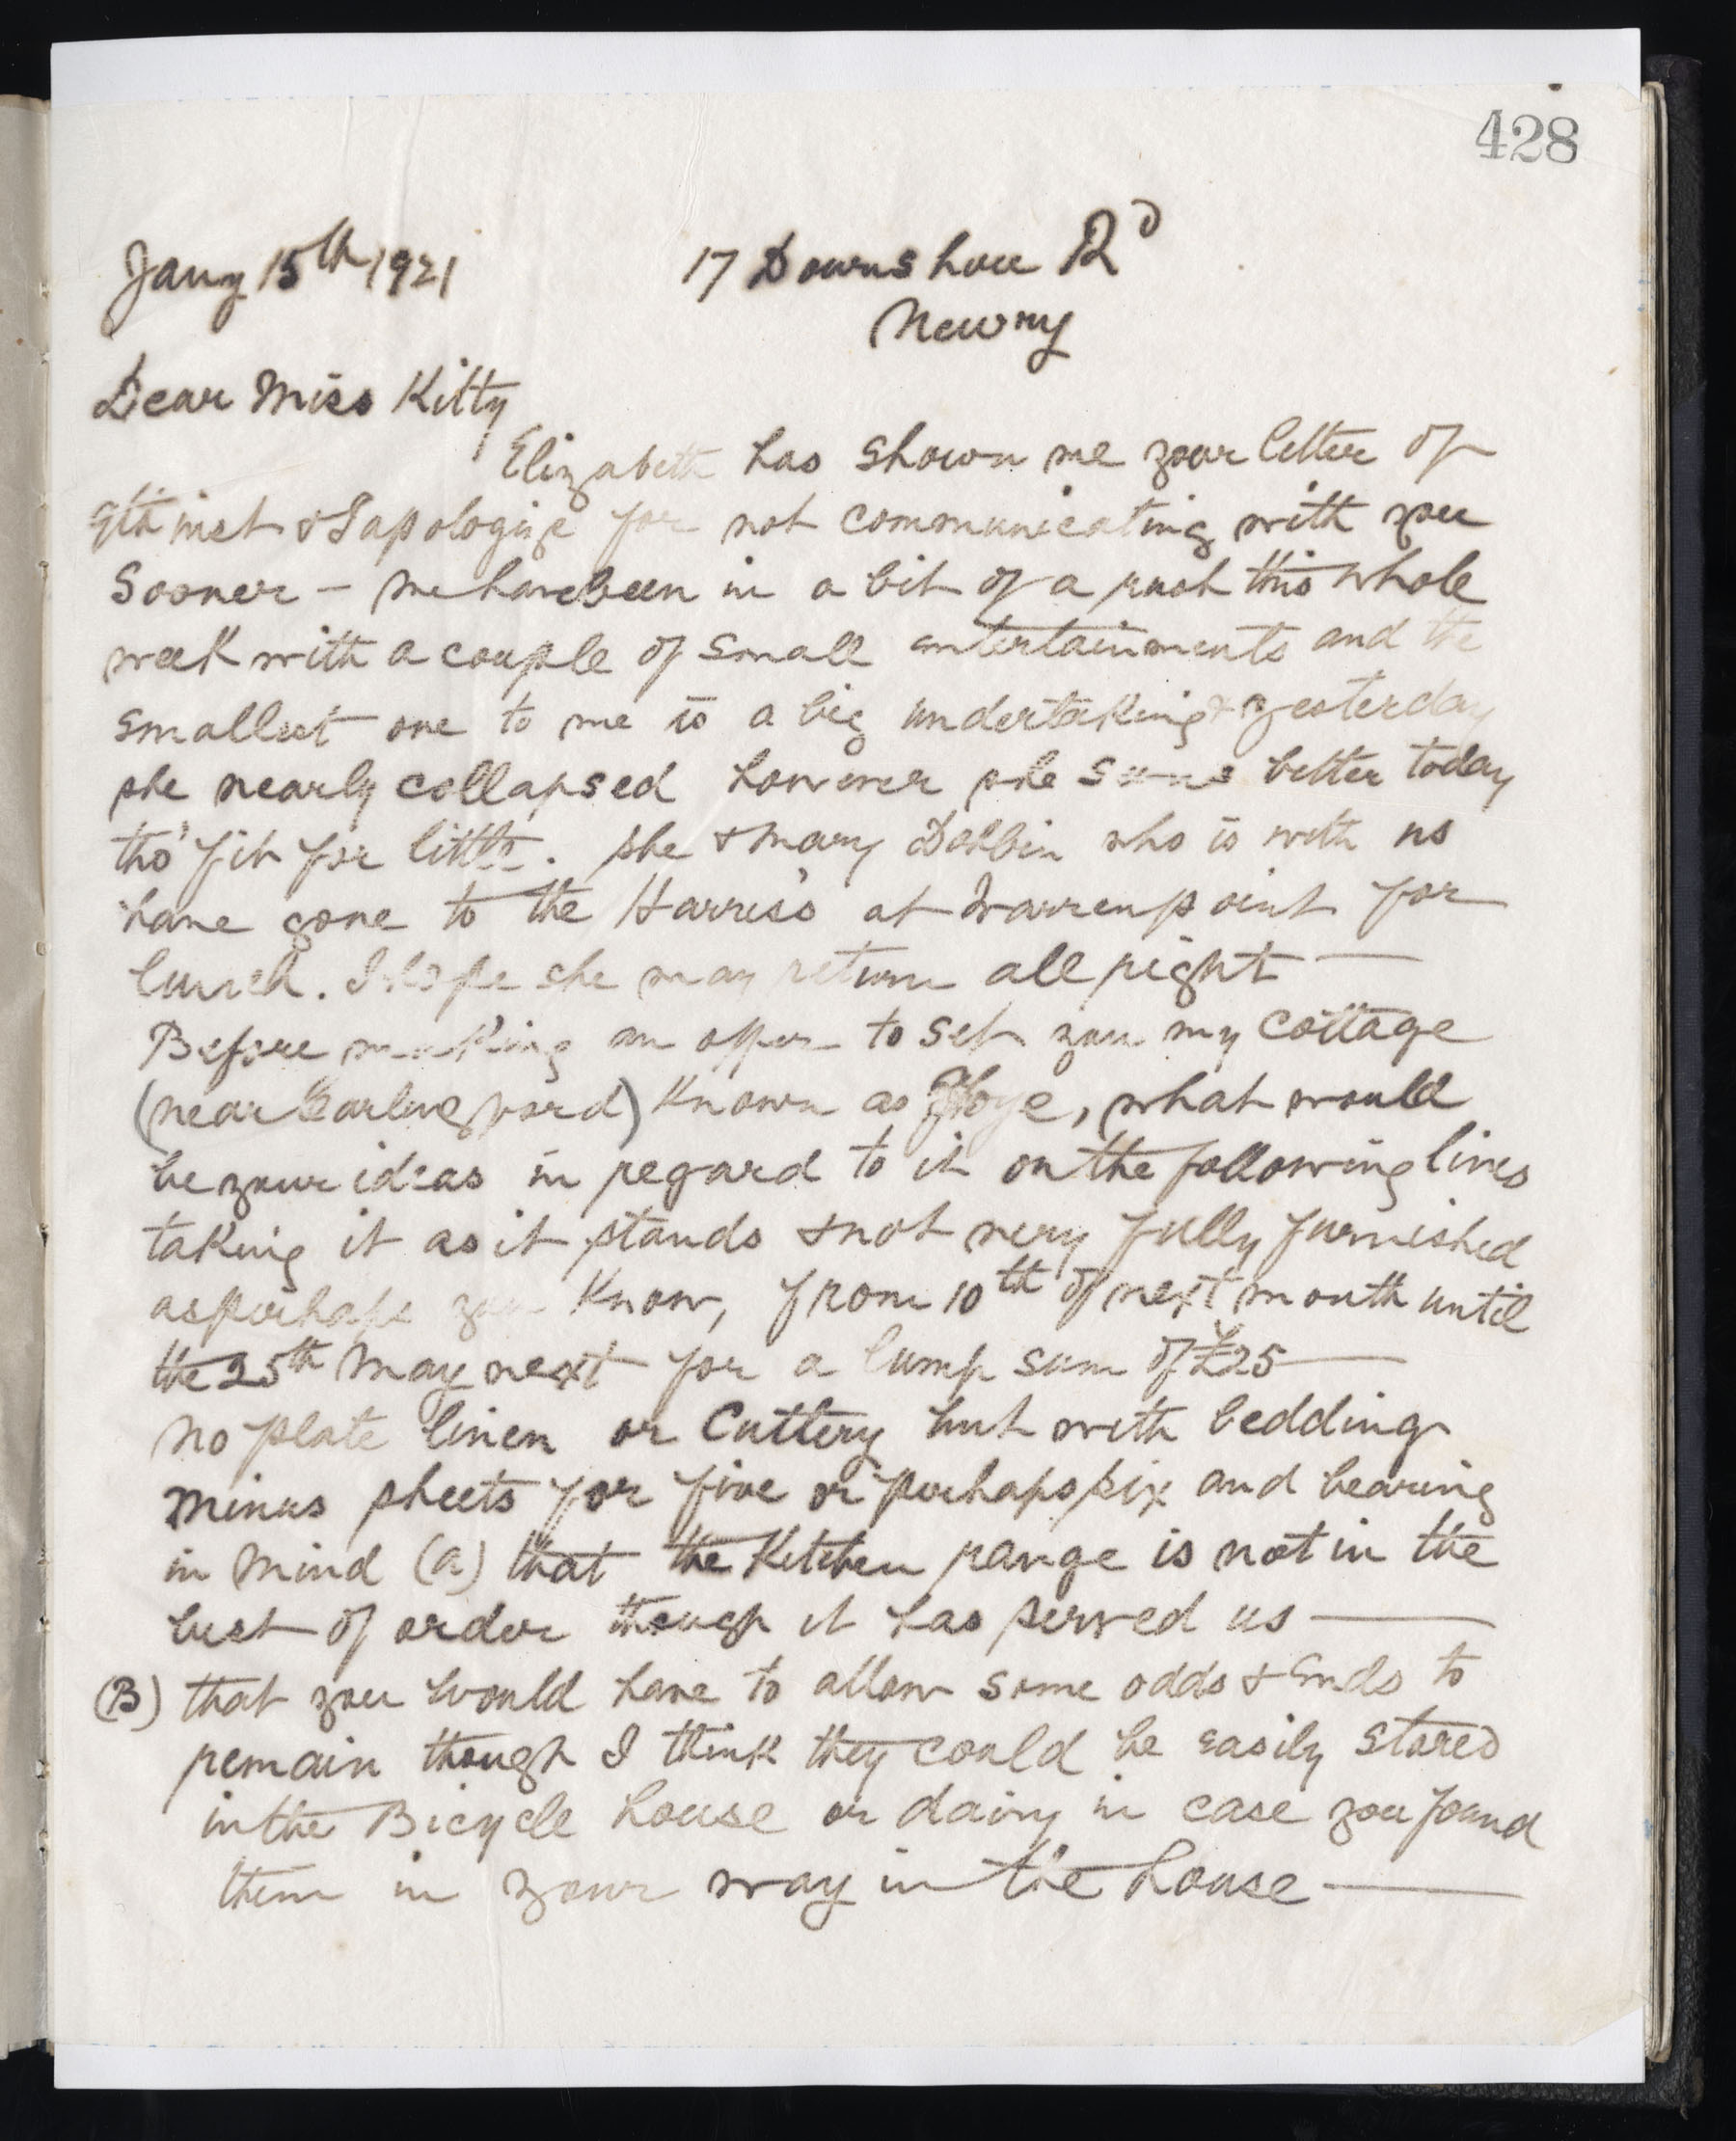 428
Jany 15th 1921 17 Downshire Rd
Newry
Dear Miss Kitty
Elizabeth has shown me your letter of
9th inst & I apologize for not communicating with you
Sooner – we have been in a bit of a rush this whole
week with a couple of small entertainments and the
smallest one to me is a big undertaking & yesterday
she nearly collapsed however she seems better today
tho' fit for little. she & Mary Dobbin who is with us
have gone to the Harris's at Warrenpoint for
lunch. I hope she may return all right —
Before making an offer to set you my cottage
(near Carlingford) known as , what would
be your ideas in regard to it on the following lines
taking it as it stands & not very fully furnished
as perhaps you know, from 10th of next month until
the 25th May next for a lump sum of £25 —
No plate linen or Cuttery but with bedding
minus sheets for five or perhaps six and bearing
in mind (a) that the Kitchen range is not in the
best of order though it has served us —
(B) that you would have to allow some odds & ends to
remain though I think they could be easily stored
in the Bicycle house or dairy in case you found
them in your way in the house —